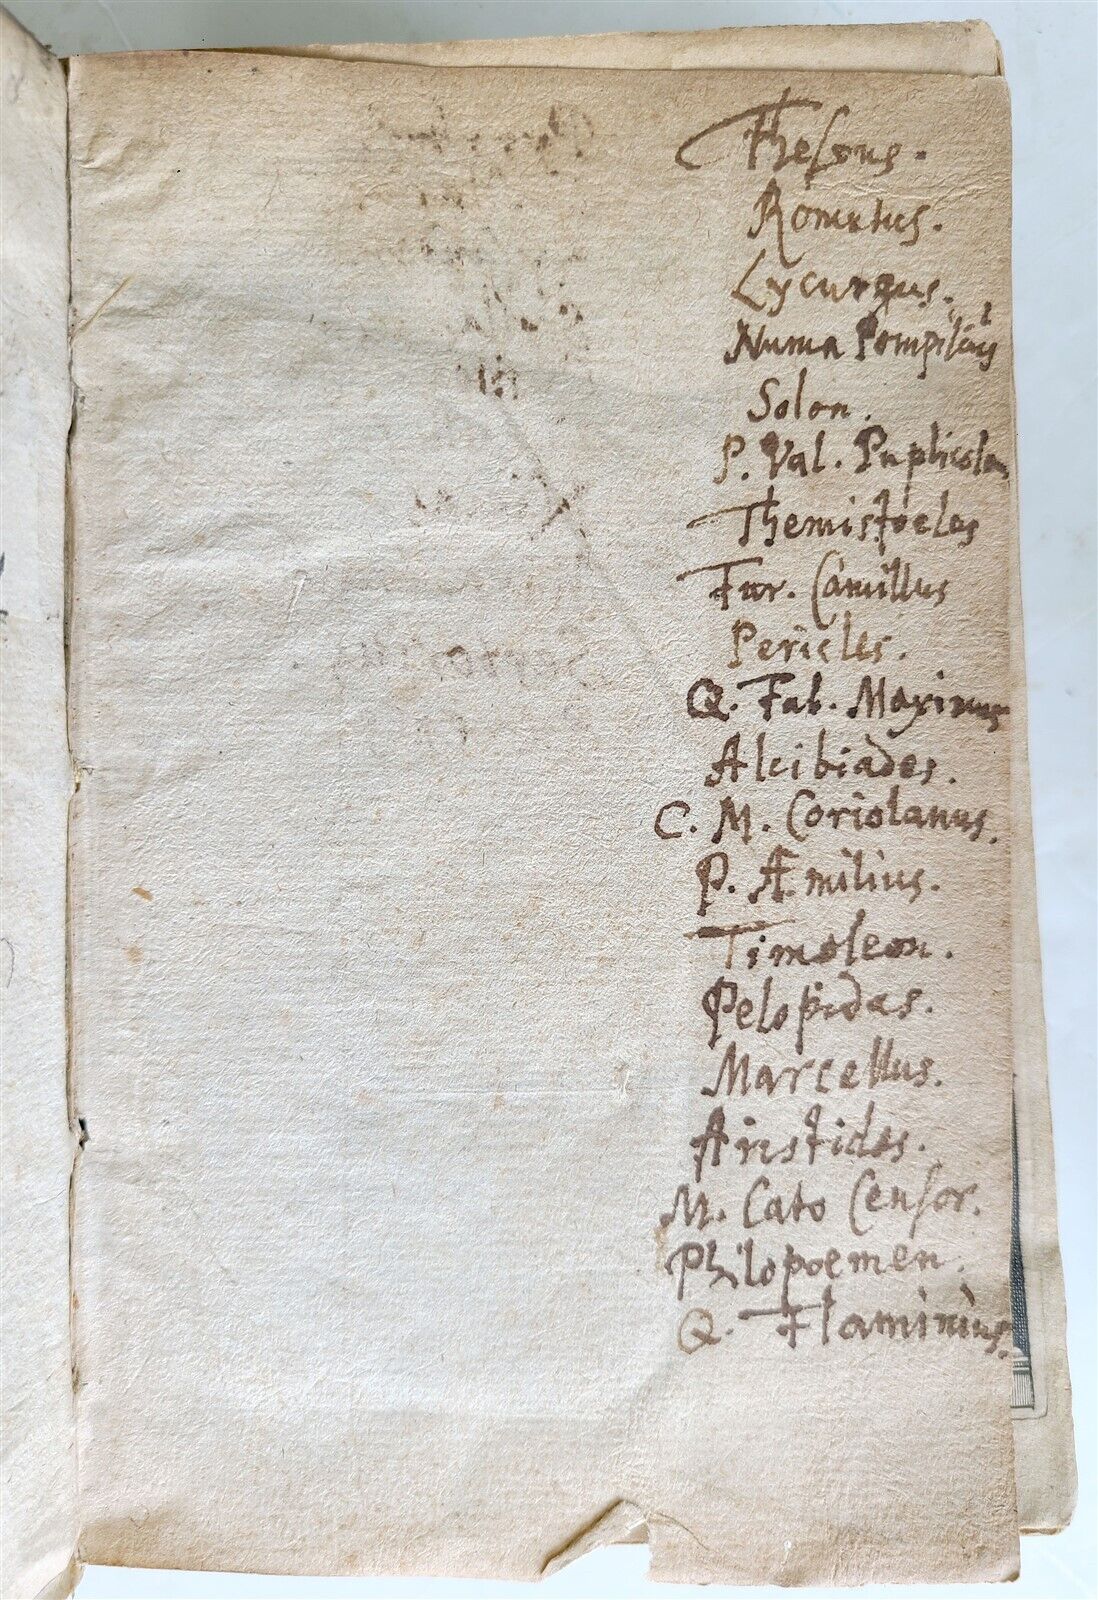 Theseus.
Romulus.
Lycurgus.
Numa Pompilius
Solon.
P. Val. Puplicola
Themistocles
Fur. Camillus
Pericles.
Q. Fab. Maximus
Alcibiades.
C. M. Coriolanus.
P. Æmilius.
Timoleon.
Pelopidas.
Marcellus.
Aristides.
M. Cato Censor.
Philopoemen.
Q. Flaminius.